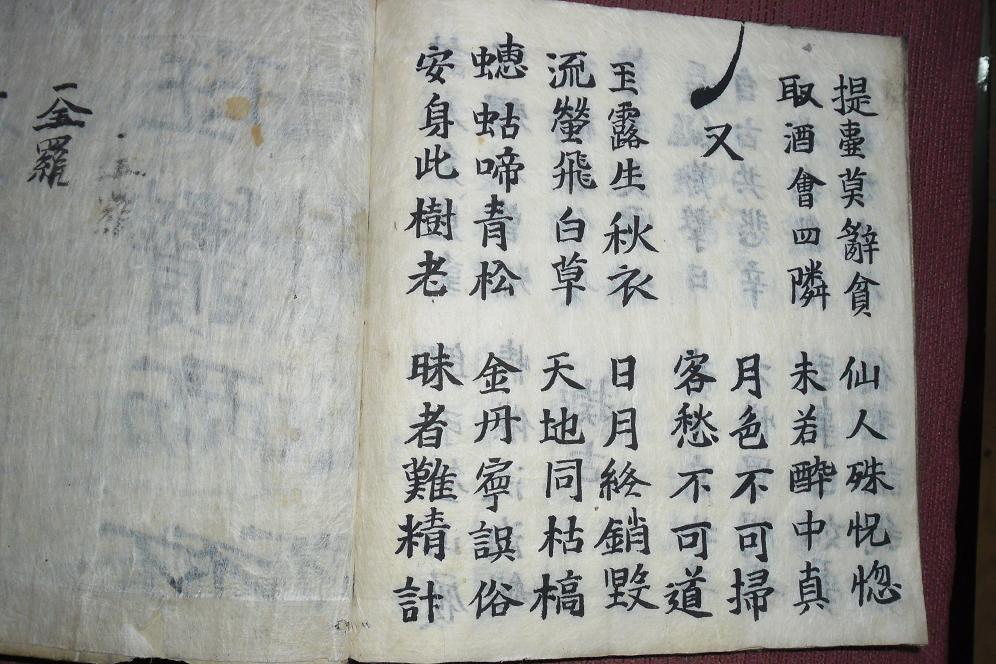 提壷莫辭貧
取酒會四隣
仙人殊怳惚
未若醉中真
又
月色不可掃
客愁不可道
玉露生秋衣
流螢飛白草
日月終銷毀
天地同枯槁
蟪蛄啼青松
安身此樹老
金丹寧誤俗
昧者難精計
全羅